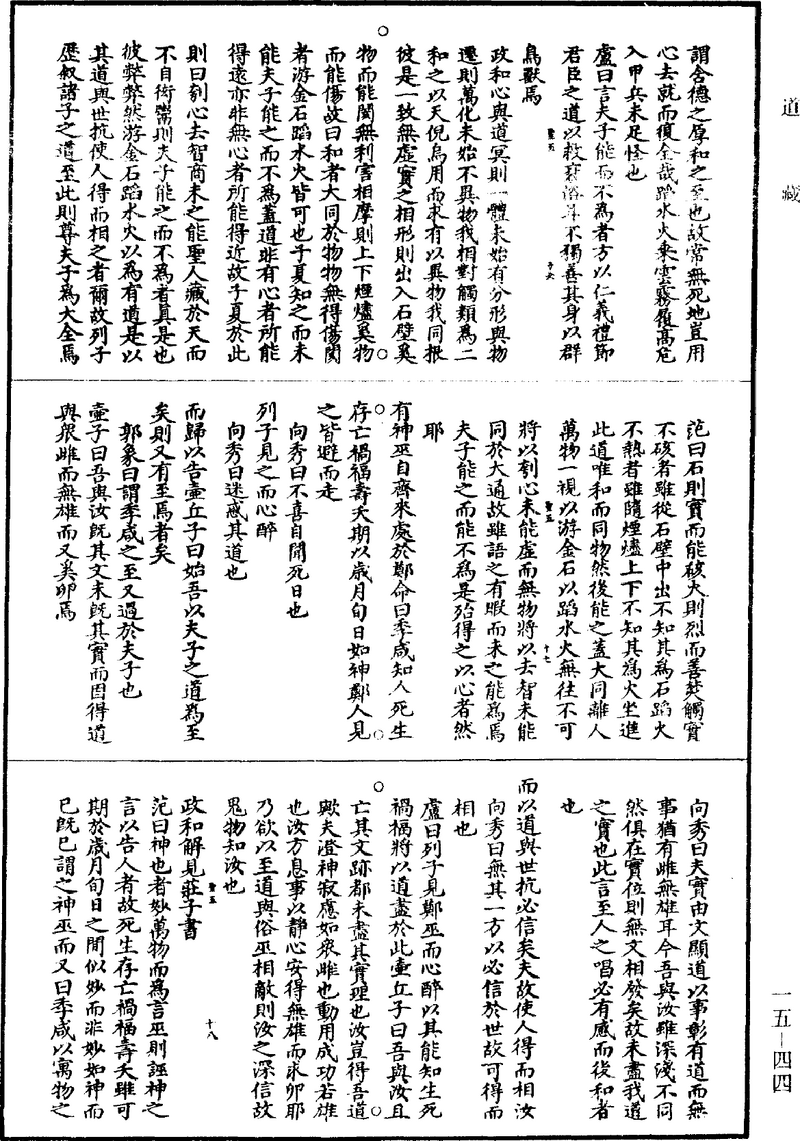 道藏
謂含德之厚和之至也故常無死地豈用
心去就而復全哉蹈水火乘雲霧履高危
入甲兵未足怪也
盧曰言夫子能而不為者方以仁義禮節
君臣之道以救衰俗耳不獨善其身以群
鳥獸焉
政和心與道冥則一體未始有分形與物
遷則萬化未始不異物我相對觸類為二
和之以天倪烏用而求有以異物我同根
彼是一致無虛實之相形則出入石壁奚
物而能閡無利害相摩則上下煙燼奚物
而能傷故曰和者大同於物物無得傷閡
者游金石蹈水火皆可也子夏知之而未
能夫子能之而不為蓋道非有心者所能
得遠亦非無心者所能得近故子夏於此
則曰刳心去智商未之能聖人藏於天而
不自衒鬻則夫子能之而不為者真是也
彼弊弊然游金石蹈水火以為有道是以
其道與世抗使人得而相之者爾故列子
歷叙諸子之道至此則尊夫子為大全焉
范曰石則實而能硋火則烈而善焚觸實
不硋者雖從石壁中出不知其為石蹈火
不熱者雖隨煙燼上下不知其為火坐進
此道唯和而同物然後能之蓋大同離人
萬物一視以游金石以蹈水火無往不可
將以刳心未能虛而無物將以去智未能
同於大通故雖語之有暇而未之能為焉
夫子能之而能不為是殆得之以心者然
耶
有神巫自齊來處於鄭命曰季咸知人死生
存亡禍福壽夭期以歲月旬日如神鄭人見
之皆避而走
向秀曰不喜自聞死日也
列子見之而心醉
向秀曰迷惑其道也
而歸以告壺丘子曰始吾以夫子之道為至
矣則又有至焉者矣
郭象曰謂季咸之至又過於夫子也
壺子曰吾與汝既其文未既其實而固得道
與衆雌而無雄而又奚卵焉
向秀曰夫實由文顯道以事彰有道而無
事猶有雌無雄耳今吾與汝雖深淺不同
然俱在實位則無文相發矣故未盡我道
之實也此言至人之唱必有感而後和者
也
而以道與世抗必信矣夫故使人得而相汝
向秀曰無其一方以必信於世故可得而
相也
盧曰列子見鄭巫而心醉以其能知生死
禍福將以道盡於此壺丘子曰吾與汝且
亡其文跡都未盡其實理也汝豈得吾道
歟夫澄神寂應如衆雌也動用成功若雄
也汝方息事以靜心安得無雄而求卵耶
乃欲以至道與俗巫相敵則汝之深信故
鬼物知汝也
政和解見莊子書
范曰神也者妙萬物而為言巫則誣神之
言以告人者故死生存亡禍福壽夭雖可
期於歲月旬日之間似妙而非妙如神而
已既已謂之神巫而又曰季咸以寓物之
十六
十七
十八
一五－四四